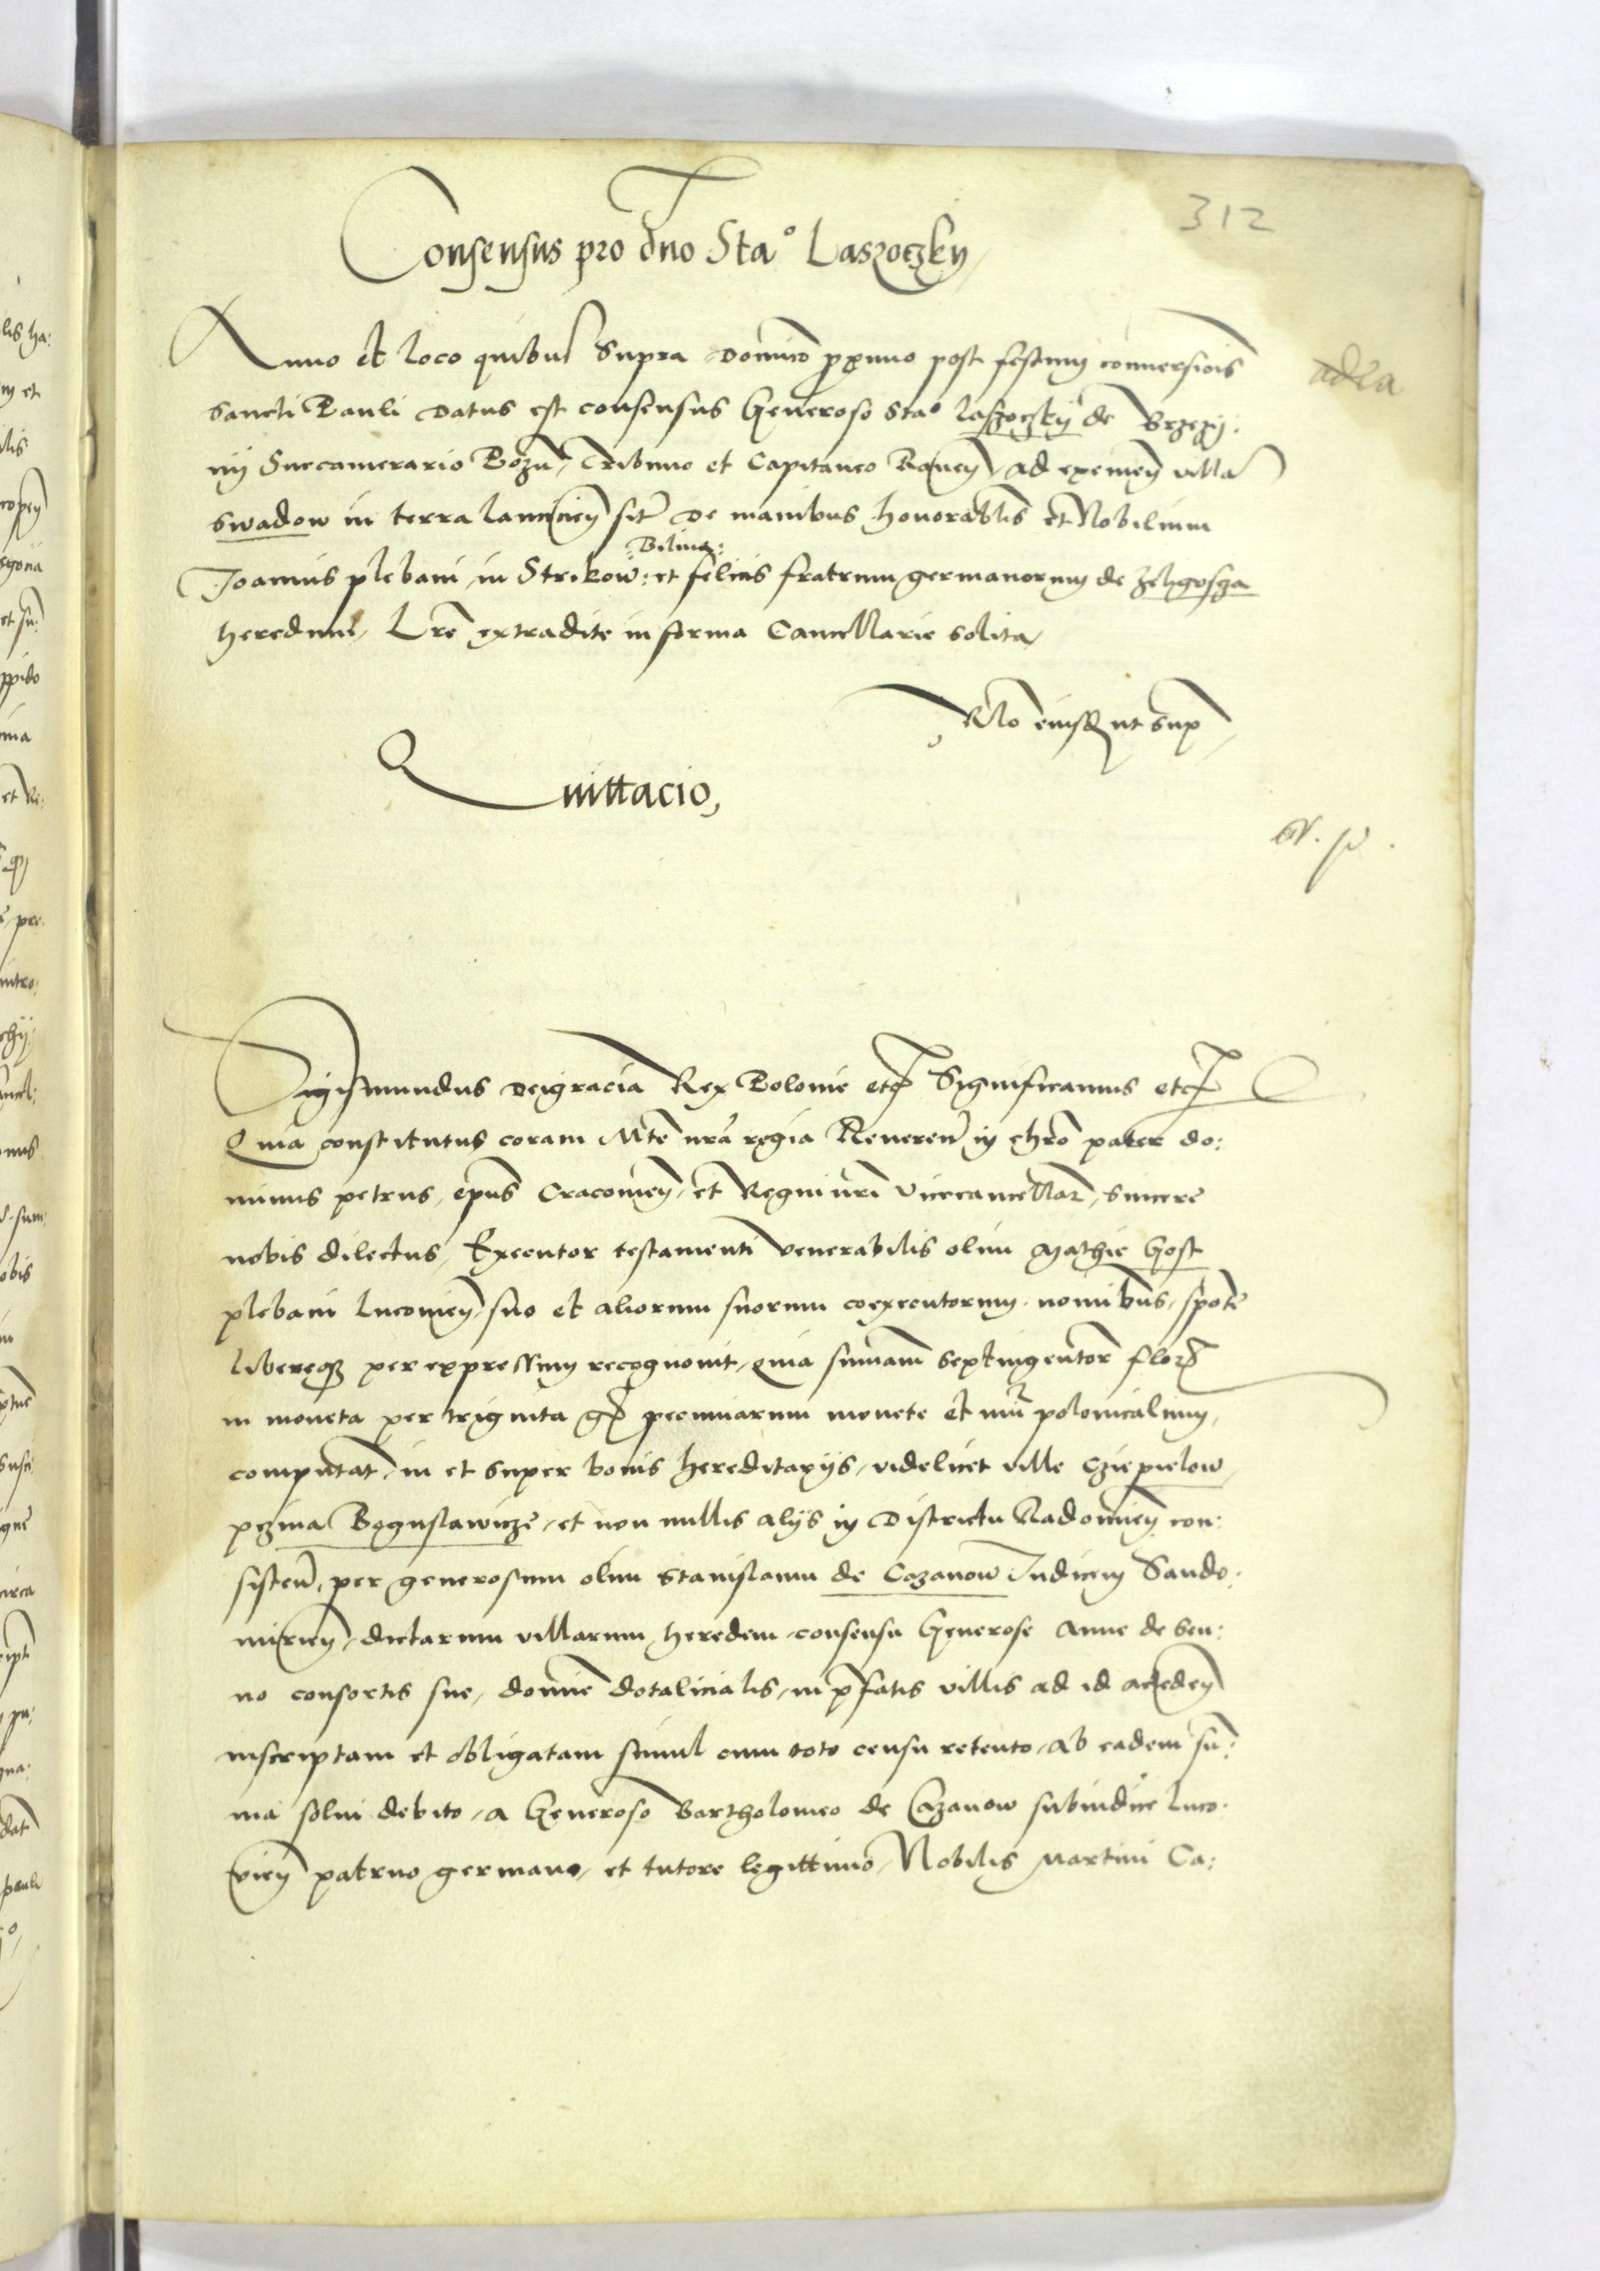 312
Consensus pro dno Sta° Laszoczky
Anno et loco quibus supra dominico proximo post festum conversiois
sancti Pauli datus est consensus Generoso Sta° laszoczky de Brzezy:
ny Succamerario Tribuno et Capitaneo ad eximen villa
swadow in terra lancicien sit de manibus honorabilis et Nobilium
Bilina:
Joannis plebani in Strikow: et felicis fratrum germanorum de zeligosza
heredum, Lre extradite in forma Cancellarie solita,
Rlo eiusdem ut sup
Quittacio,
Sigismundus deigracia Rex Polonie etc Significamus etc
Quia constitutus coram Mte nra regia Reveren in chro pater do:
minus petrus, epus Cracovien, et Regni nri Vicecancellar, sincere
nobis dilectus, Executor testamenti venerabilis olim Mathie Gost
plebani Lucovien, suo et aliorum suorum coexecutorum nominibus, sponte
libereque per expressum recognovit, quia summam septingentor flor
in moneta per triginta gr pecuniarum monete et nri polonicalium,
computat, in et super bonis hereditariis, videlicet ville Cziepielow,
Boguslawicze, et non nullis aliis in Districtu Radomien con:
sisten, per generosum olim Stanislaum de Cazanow Judicem Sando:
mirien, dictarum villarum heredem consensu Generose Anne de ben:
no consortis sue, domine dotalicialis, in prefatis villis ad id acceden
inscriptam et obligatam simul cum toto censu retento, ab eadem sum:
ma solvi debito, a Generoso Bartholomeo de Cazanow subiudice Luco:
vien patruo germano, et tutore legittimo, Nobilis Martini Ca: